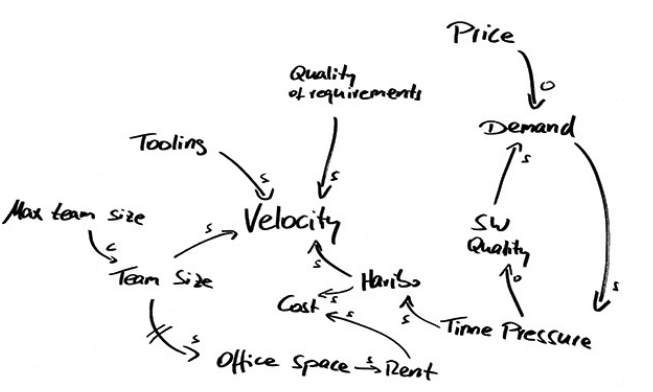 Price
O
Quality
of requirements
Demand
Tooling
S
S
S
Max team size
C
S
Velocity
SW
Quality
Team Size
S
Haribo
O
S
Cost
S
S
S
Time Pressure
S
Office Space
S
Rent